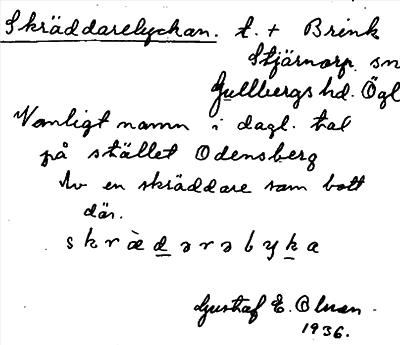 Skräddarelyckan. t. + Brink
Stjärnorp sn
Gullbergs hd. Ögl
Vanligt namn i dagl. tal
på stället Odensberg
Av en skräddare som bott
där.
skrædərəbyka
Gustaf E. Olsson.
1936.